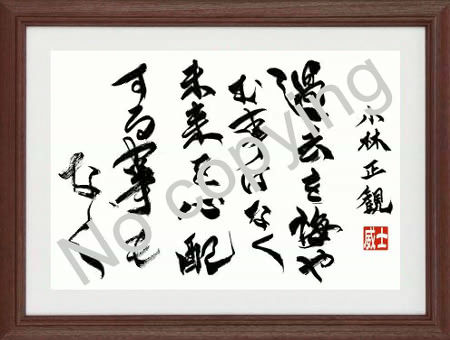 小林正観
威士
過去を悔や
む なく
未来を心配
する事も
なく
No copying